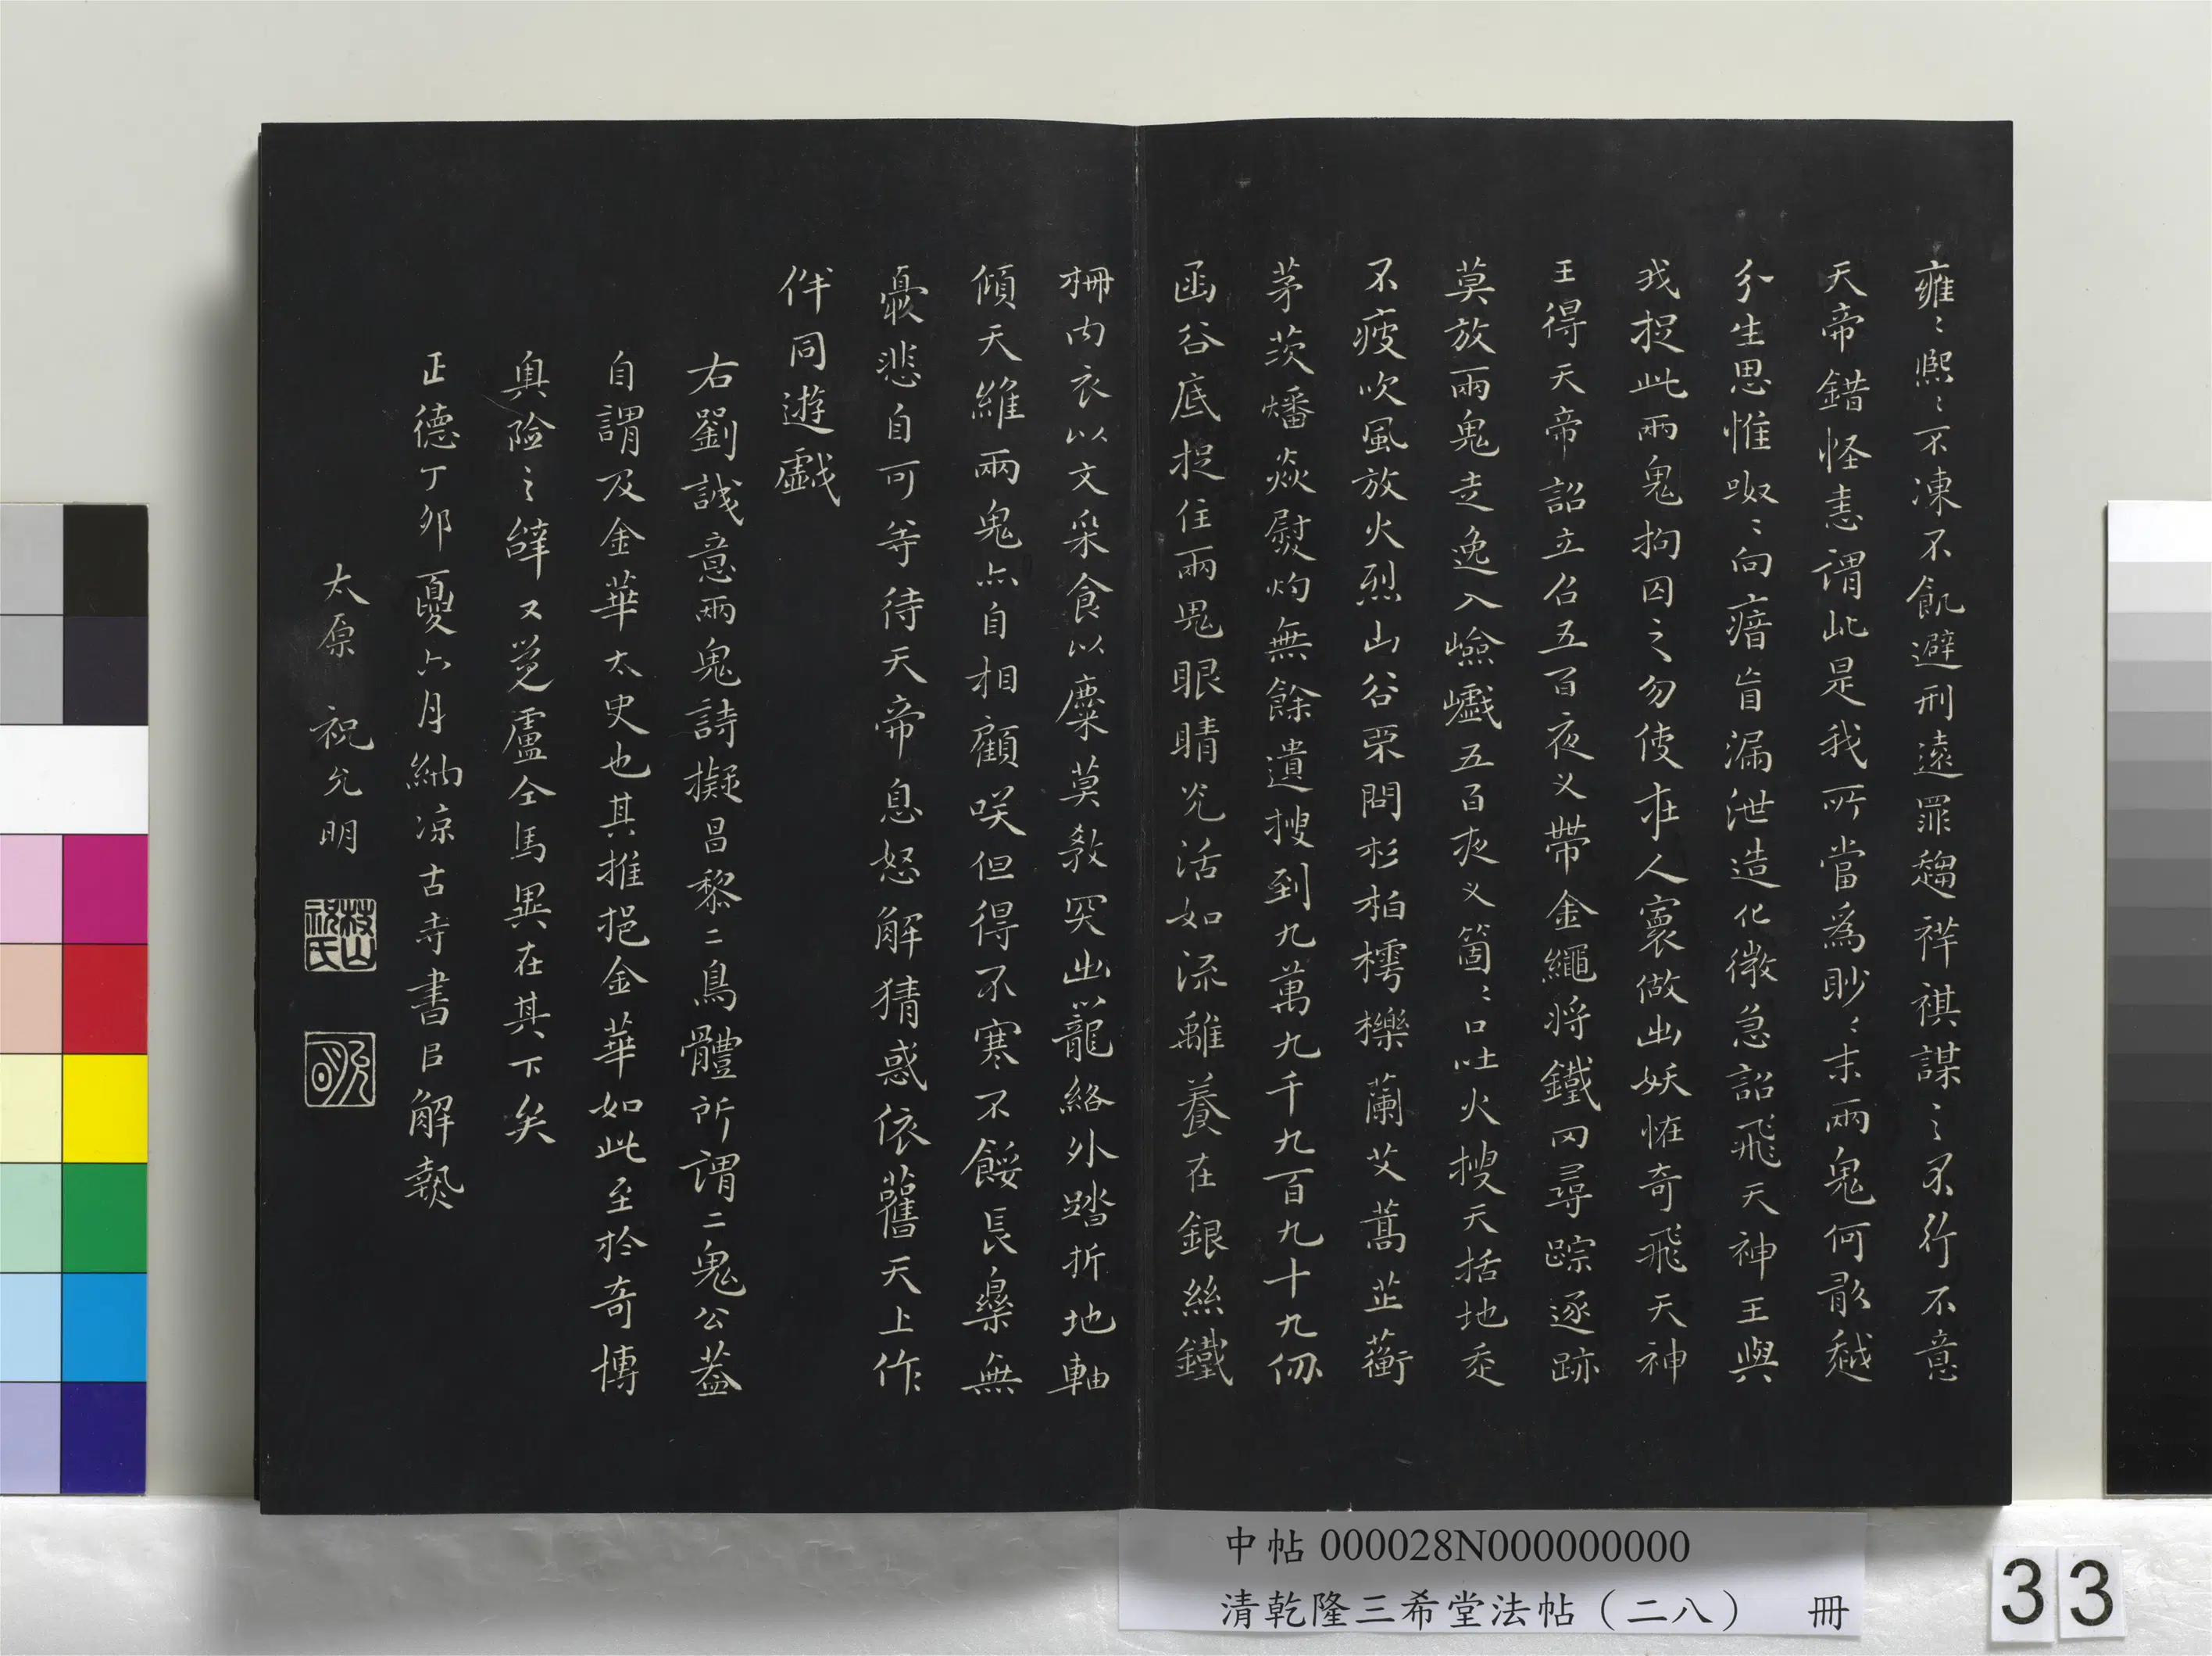 雍〻熙〻不凍不飢避刑遠罪趨祥祺謀之不行不意
天帝錯怪恚謂此是我所當為眇〻末兩鬼何敢越
分生思惟呶〻向瘖盲漏泄造化微急詔飛天神王與
我捉此兩鬼拘囚之勿使在人寰做出妖怪奇飛天神
王得天帝詔立召五百夜叉帶金繩將鐵网尋踪逐跡
莫放兩鬼走逸入嶮巇五百夜叉箇〻口吐火搜天括地走
不疲吹風放火烈山谷不問杉柏樗櫟蘭艾蒿芷蘅
茅茨燔焱熨灼無餘遺搜到九萬九千九百九十九仞
函谷底捉住兩鬼眼睛光活如流離養在銀絲鐵
柵內衣以文采食以麋莫教突出籠絡外踏折地軸
傾天維兩鬼亦自相顧咲但得不寒不餒長樂無
憂悲自可等待天帝息怒解猜惑依舊天上作
伴同遊戲
右劉誠意兩鬼詩擬昌黎二鳥體所謂二鬼公蓋
自謂及金華太史也其推挹金華如此至於奇博
奧險之辭又覺盧仝馬異在其下矣
正德丁卯夏六月納凉古寺書㠯解熱
太原 祝允明
枝山祝氏
允明
中帖 000028N000000000
清乾隆三希堂法帖（二八） 冊
33